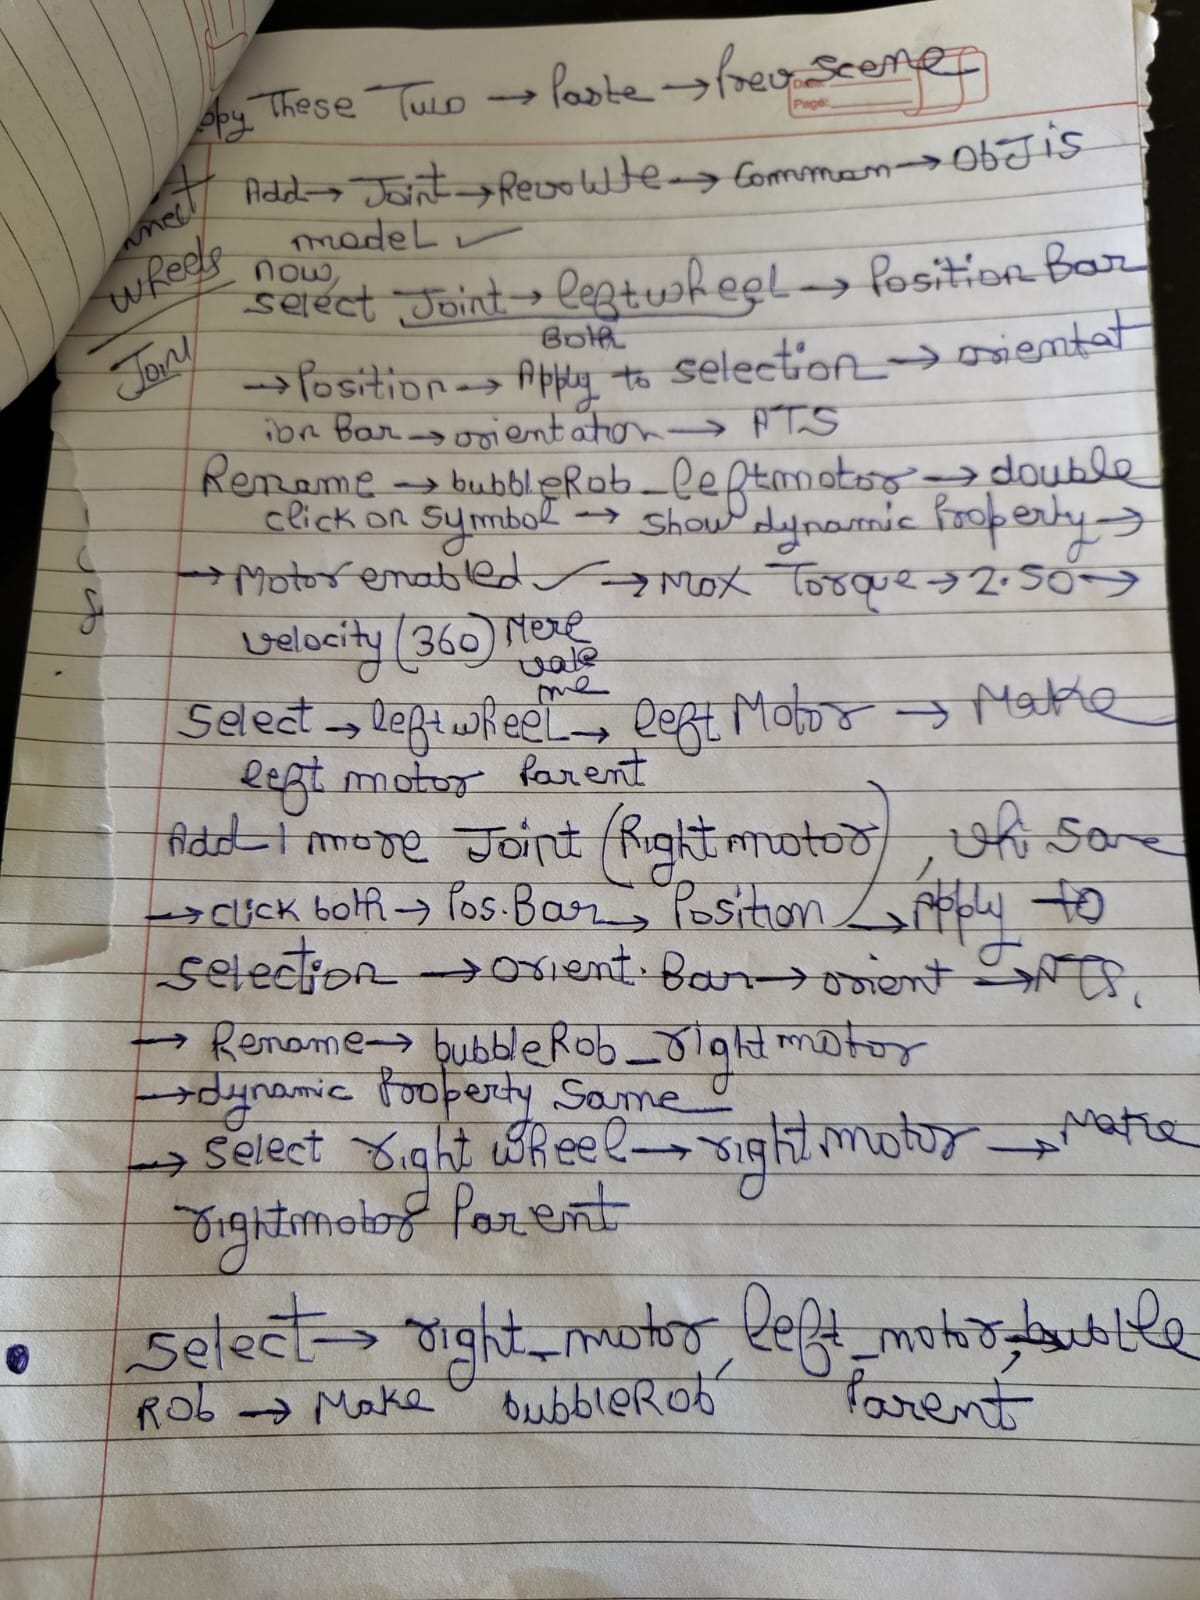 opy These Two → Paste → Prev Scene
Date:
Page:
Add → Joint → Revolute → Common → Obj is
model ✓
nnect
wheels
Joint
now,
select Joint → leftwheel → Position Bar
Both
→ Position → Apply to selection → orientat
ion Bar → orientation → ATS
Rename → bubbleRob_leftmotor → double
click on symbol → show dynamic Property →
→ Motor enabled ✓ → Max Torque → 2.50 →
velocity (360) Mere
me
Select → leftwheel → left Motor → Make
left motor Parent
Add 1 more Joint (Right motor),
→ click both → Pos. Bar → Position → Apply to
selection → orient. Bar → orient → ATS.
→ Rename → bubbleRob_rightmotor
→ dynamic Property Same
→ select right wheel → right motor → Make
rightmotor Parent
Select → right_motor, left_motor, bubble
Rob → Make bubbleRob Parent